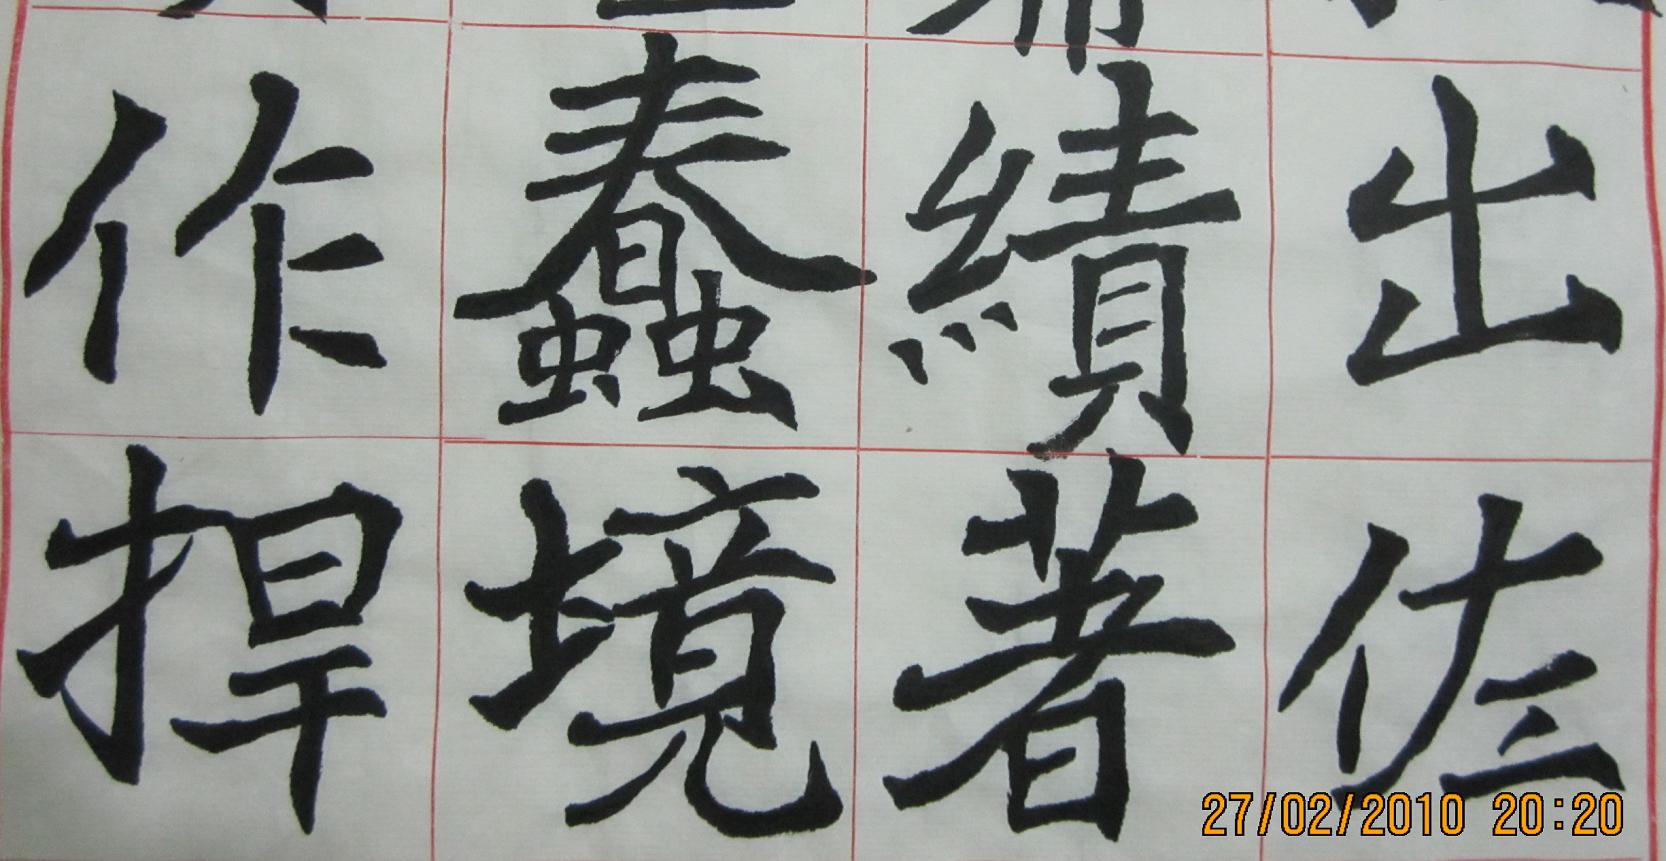 出佐
績著
蠢境
作捍
27/02/2010 20:20